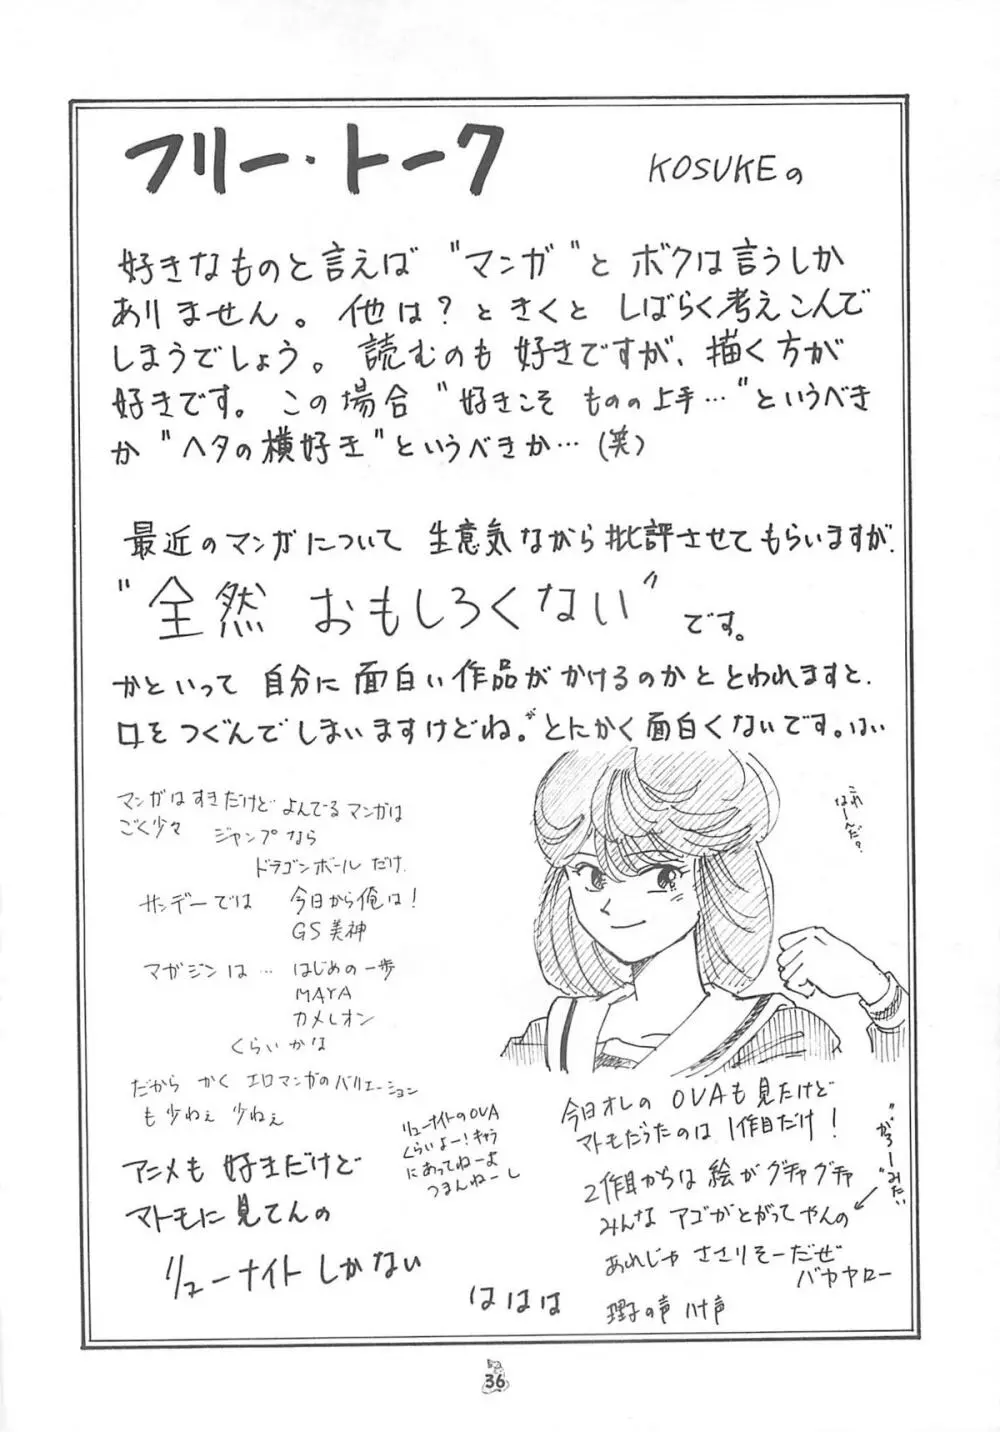 フリー・トーク
KOSUKEの
好きなものと言えば "マンガ" と ボクは言うしか
ありません。他は？ときくと しばらく考えこんで
しまうでしょう。読むのも好きですが、描く方が
好きです。この場合 "好きこそ ものの上手…" というべき
か "ヘタの横好き" というべきか…(笑)
最近のマンガについて 生意気ながら批評させてもらいますが、
"全然 おもしろくない" です。
かといって 自分に面白い作品がかけるのかと とわれますと、
口をつぐんでしまいますけどね。が とにかく面白くないです。はい
マンガはすきだけど よんでるマンガは
ごく少々 ジャンプなら
ドラゴンボールだけ、
サンデーでは 今日から俺は！
GS美神
マガジンは… はじめの一歩
MAYA
カメレオン
くらいかな
だから かく エロマンガのバリエーション
も少ねぇ 少ねぇ
アニメも 好きだけど
マトモに見てんの
リューナイトしかない
リューナイトのOVA
くらいよー！キャラ
にあってねーよ
つまんねーし
ははは
これ
はーんだ？
今日オレの OVAも見たけど
マトモだったのは 1作目だけ！
2作目からは 絵がグチャグチャ
みんな アゴがとがってやんの
"がろーみたい"
あれじゃ ささりそーだぜ
バカヤロー
理子の声 ハナ声
36